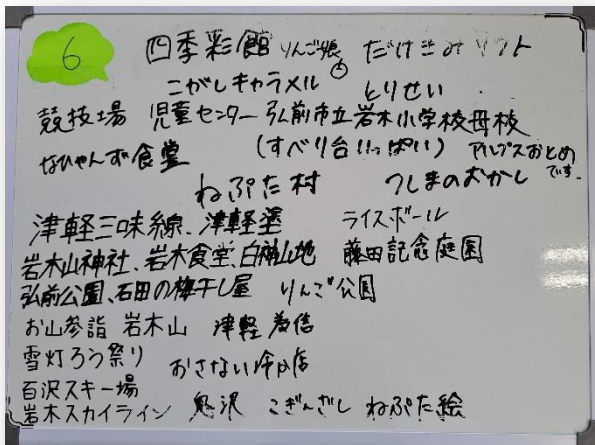 6
四季彩館 りんご娘 だけきみソフト
こがしキャラメル とりせい
競技場 児童センター 弘前市立岩木小学校母校
なひゃんず食堂 (すべり台いっぱい) アルプスおとめです。
ねぷた村 つしまのおかし
津軽三味線、津軽塗 ライスボール
岩木山神社、岩木食堂、白神山地 藤田記念庭園
弘前公園、石田の梅干し屋 りんご公園
お山参詣 岩木山 津軽為信
雪灯ろう祭り おさない
百沢スキー場
岩木スカイライン 鬼沢 こぎんざし ねぷた絵